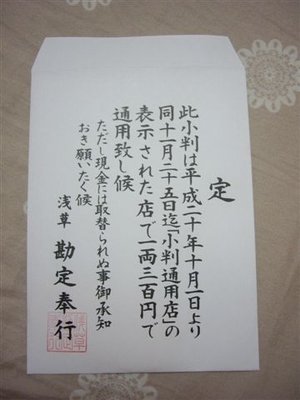 定
此小判は平成二十年十月一日より
同十一月二十五日迄「小判通用店」の
表示された店で一両三百円で
通用致し候
ただし現金には取替られぬ事御承知
おき願いたく候
浅草 勘定奉行